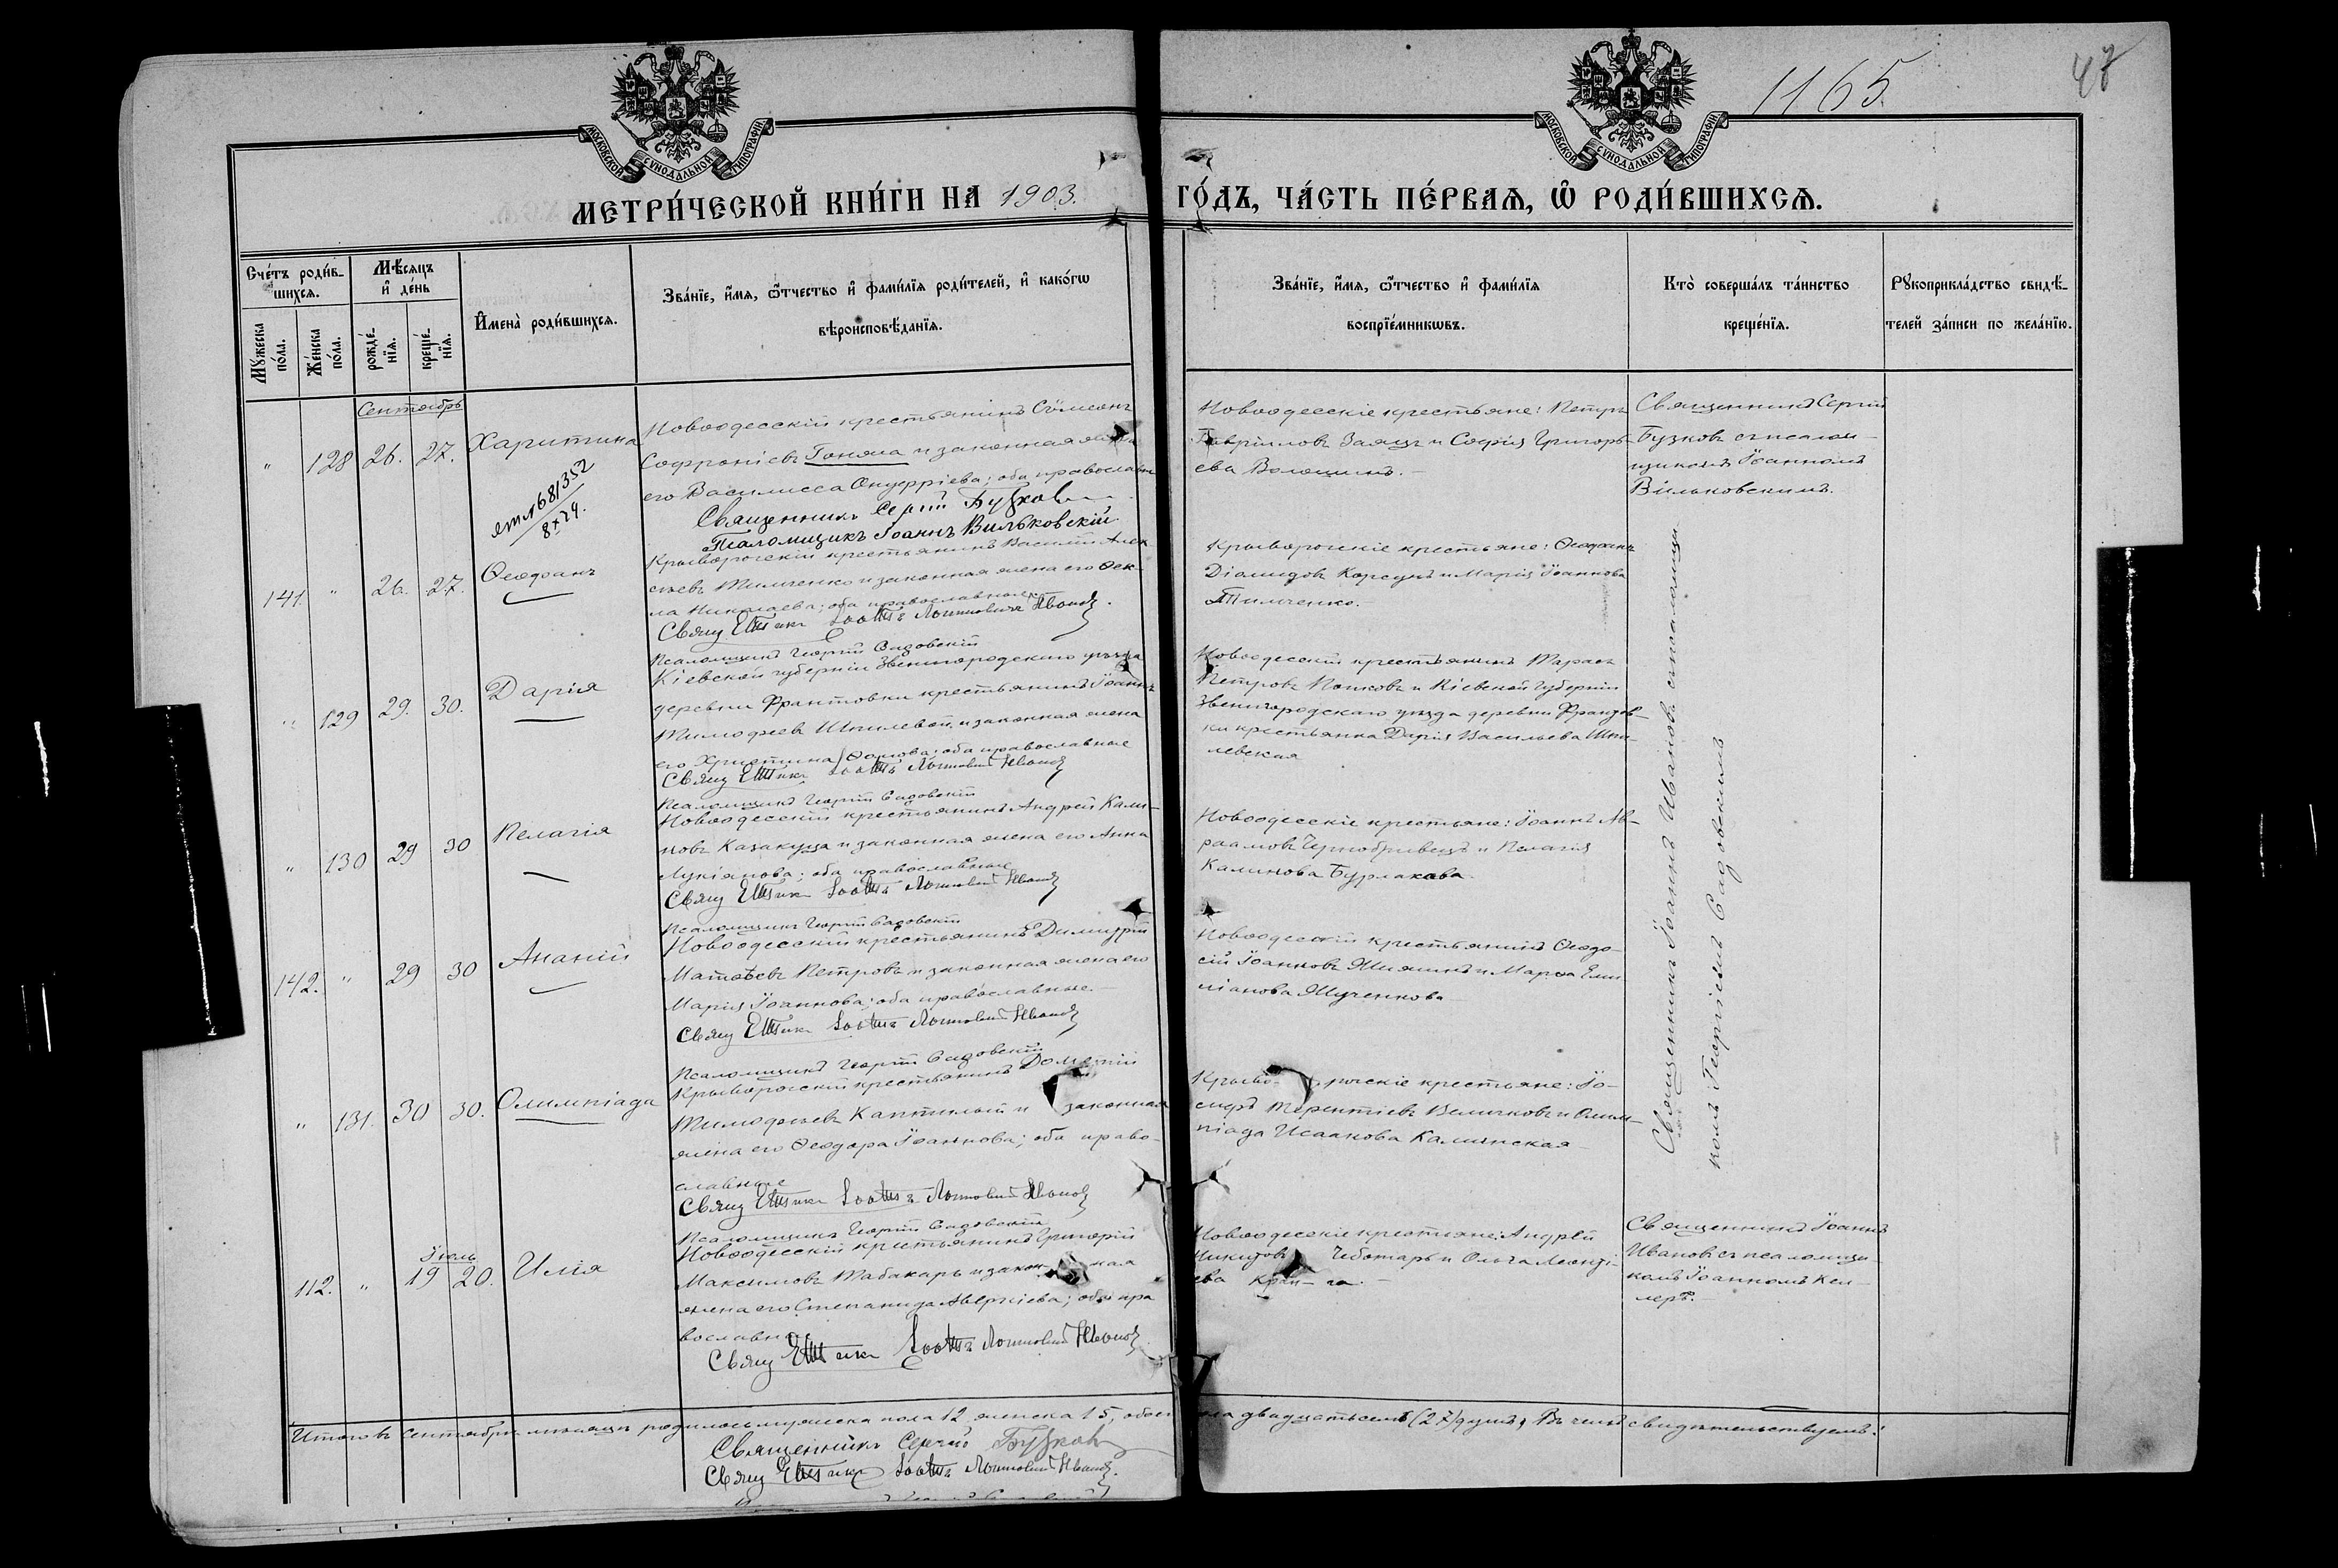 1165.
47
МОСКОВСКОЙ СѴНОДАЛЬНОЙ ТИПОГРАФІИ.
МОСКОВСКОЙ СѴНОДАЛЬНОЙ ТИПОГРАФІИ.
МЕТРИ́ЧЕСКОЙ КНИ́ГИ НА 1903. ГО́ДЪ, ЧА́СТЬ ПЕ́РВАѦ, Ѽ РОДИ́ВШИХСѦ.
Сче́тъ роди́в-
шихсѧ.
Мꙋ́жеска
по́ла.
Же́нска
по́ла.
Мѣ́сѧцъ
и҆ де́нь
рожде́-
нїѧ.
креще́-
нїѧ.
И҆мена̀ роди́вшихсѧ.
Зва́нїе, и҆́мѧ, ѻ҆́тчество и҆ фами́лїѧ роди́телей, и҆ како́гѡ
вѣроисповѣ́данїѧ.
Зва́нїе, и҆́мѧ, ѻ҆́тчество и҆ фами́лїѧ
воспрїе́мникѡвъ.
Кто̀ соверша́лъ та́инство
креще́нїѧ.
Рꙋкоприкла́дство свидѣ́-
телей за́писи по жела́нїю.
Сентябрь
" 128 26. 27. Харитина
681352
8 х 29.
Новоодесскій крестьянинъ Сѵмеонъ
Софроніевъ Гоняма и законная жена
его Василисса Онуфріева; оба православн
Священникъ Сергій Бузковъ
Псаломщикъ Іоаннъ Вильковскій.
Новоодесскіе крестьяне: Петръ
Гавріиловъ Заяцъ и Софія Григорь-
ева Волошинъ.-
Священникъ Сергій
Бузковъ съ псалом-
щикомъ Іоанномъ
Вильковскимъ.
141. " 26. 27. Ѳеофанъ
Криворогскій крестьянинъ Василій Алек
сѣевъ Тимченко и законная жена его Ѳек-
ла Николаева; оба православные.
Свящ Іоаннъ Ивановъ.
Псаломщикъ Георгій Садовскій
Криворогскіе крестьяне: Ѳеофанъ
Діомидовъ Корсунъ и Марія Іоаннова
Тимченко.
" 129 29. 30. Дарія
Кіевской губерніи Звенигородскаго уѣзда
деревни Франтовки крестьянинъ Іоаннъ
Тимофеевъ Шпилевой и законная жена
его Христина Ѳомова; оба православные
Свящ Ивановъ
Псаломщикъ Георгій Садовскій
Новоодесскій крестьянинъ Тарасъ
Петровъ Попковъ и Кіевской губерніи
Звенигородскаго уѣзда деревни Францов-
ки крестьянка Дарія Васильева Шпи-
левская
" 130 29 30 Пелагія
Новоодесскій крестьянинъ Андрей Кали-
новъ Казакуца и законная жена его Анна
Лукіянова; оба православные
Свящ Ивановъ
Псаломщикъ Георгій Садовскій
Новоодесскіе крестьяне: Іоаннъ Ав-
раамовъ Чернобривецъ и Пелагія
Калинова Бурлакова
142. " 29 30 Ананій
Новоодесскій крестьянинъ Димитрій
Матѳѣевъ Петровъ и законная жена его
Марія Іоаннова; оба православные.-
Свящ Ивановъ
Псаломщикъ Георгій Садовскій
Новоодесскій крестьянинъ Ѳеодо-
сій Іоанновъ и Марѳа Еми
ліанова Шученкова
" 131. 30 30. Олимпіада
Криворогскій крестьянинъ Дометій
Тимофеевъ Каптилый и законная
жена его Ѳеодора Іоаннова; оба право-
славные
Свящ Ивановъ
Псаломщикъ Георгій Садовскій
Криво- рогскіе крестьяне: Іо-
сифъ Терентіевъ Величковъ и Олим-
піада Исаакова Калинская
Священникъ Іоаннъ Ивановъ съ псаломщи
комъ Георгіемъ Садовскимъ
Іюль
112. " 19 20. Илія
Новоодесскій крестьянинъ Григорій
Максимовъ Табакарь и закон ная
жена его Степанида Аверкіева; оба пра
вославн
Свящ Ивановъ
Новоодесскіе крестьяне: Андрей
Никитовъ Чеботарь и Ольга Леонті-
ева
Священникъ Іоаннъ
Ивановъ съ псаломщи-
комъ Іоанномъ Кел-
леръ.-
Итого въ Сентябрѣ мѣсяцѣ родилось мужеска пола 12, женска 15, обоег ола двадцать семь (27) душъ, Въ чемъ свидѣтельствуемъ:
Священникъ Сергій Бузковъ
Свящ Ивановъ.